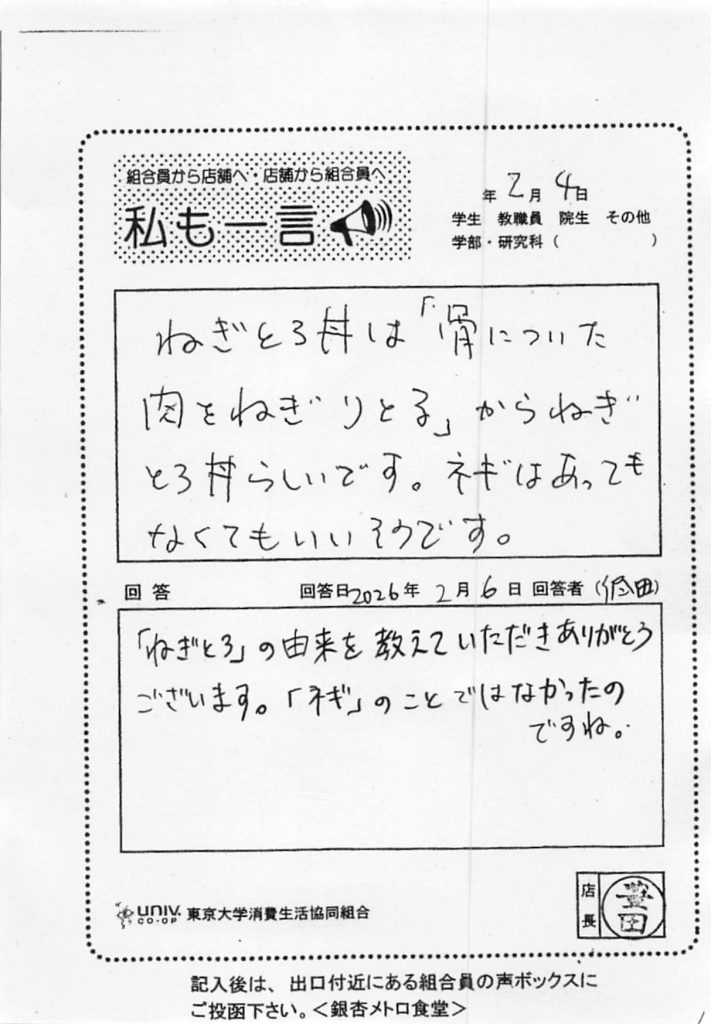 組合員から店舗へ・店舗から組合員へ
私も一言
年 2月 4日
学生 教職員 院生 その他
学部・研究科( )
ねぎとろ丼は「骨についた
肉をねぎりとる」からねぎ
とろ丼らしいです。ネギはあっても
なくてもいいそうです。
回答 回答日2026年 2月 6日 回答者(田)
「ねぎとろ」の由来を教えていただきありがとう
ございます。「ネギ」のことではなかったの
ですね。
店長 豊田
UNIV. CO-OP 東京大学消費生活協同組合
記入後は、出口付近にある組合員の声ボックスに
ご投函下さい。<銀杏メトロ食堂>